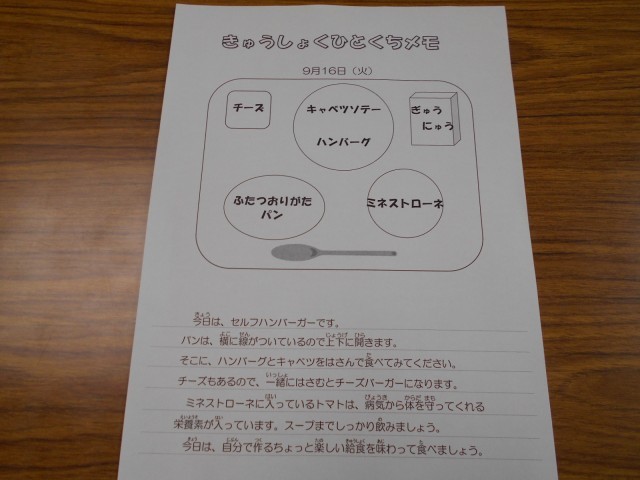 きゅうしょくひとくちメモ
9月16日（火）
チーズ
キャベツソテー
ハンバーグ
ぎゅう
にゅう
ふたつおりがた
パン
ミネストローネ
今日は、セルフハンバーガーです。
パンは、横に線がついているので上下に開きます。
そこに、ハンバーグとキャベツをはさんで食べてみてください。
チーズもあるので、一緒にはさむとチーズバーガーになります。
ミネストローネに入っているトマトは、病気から体を守ってくれる
栄養素が入っています。スープまでしっかり飲みましょう。
今日は、自分で作るちょっと楽しい給食を味わって食べましょう。